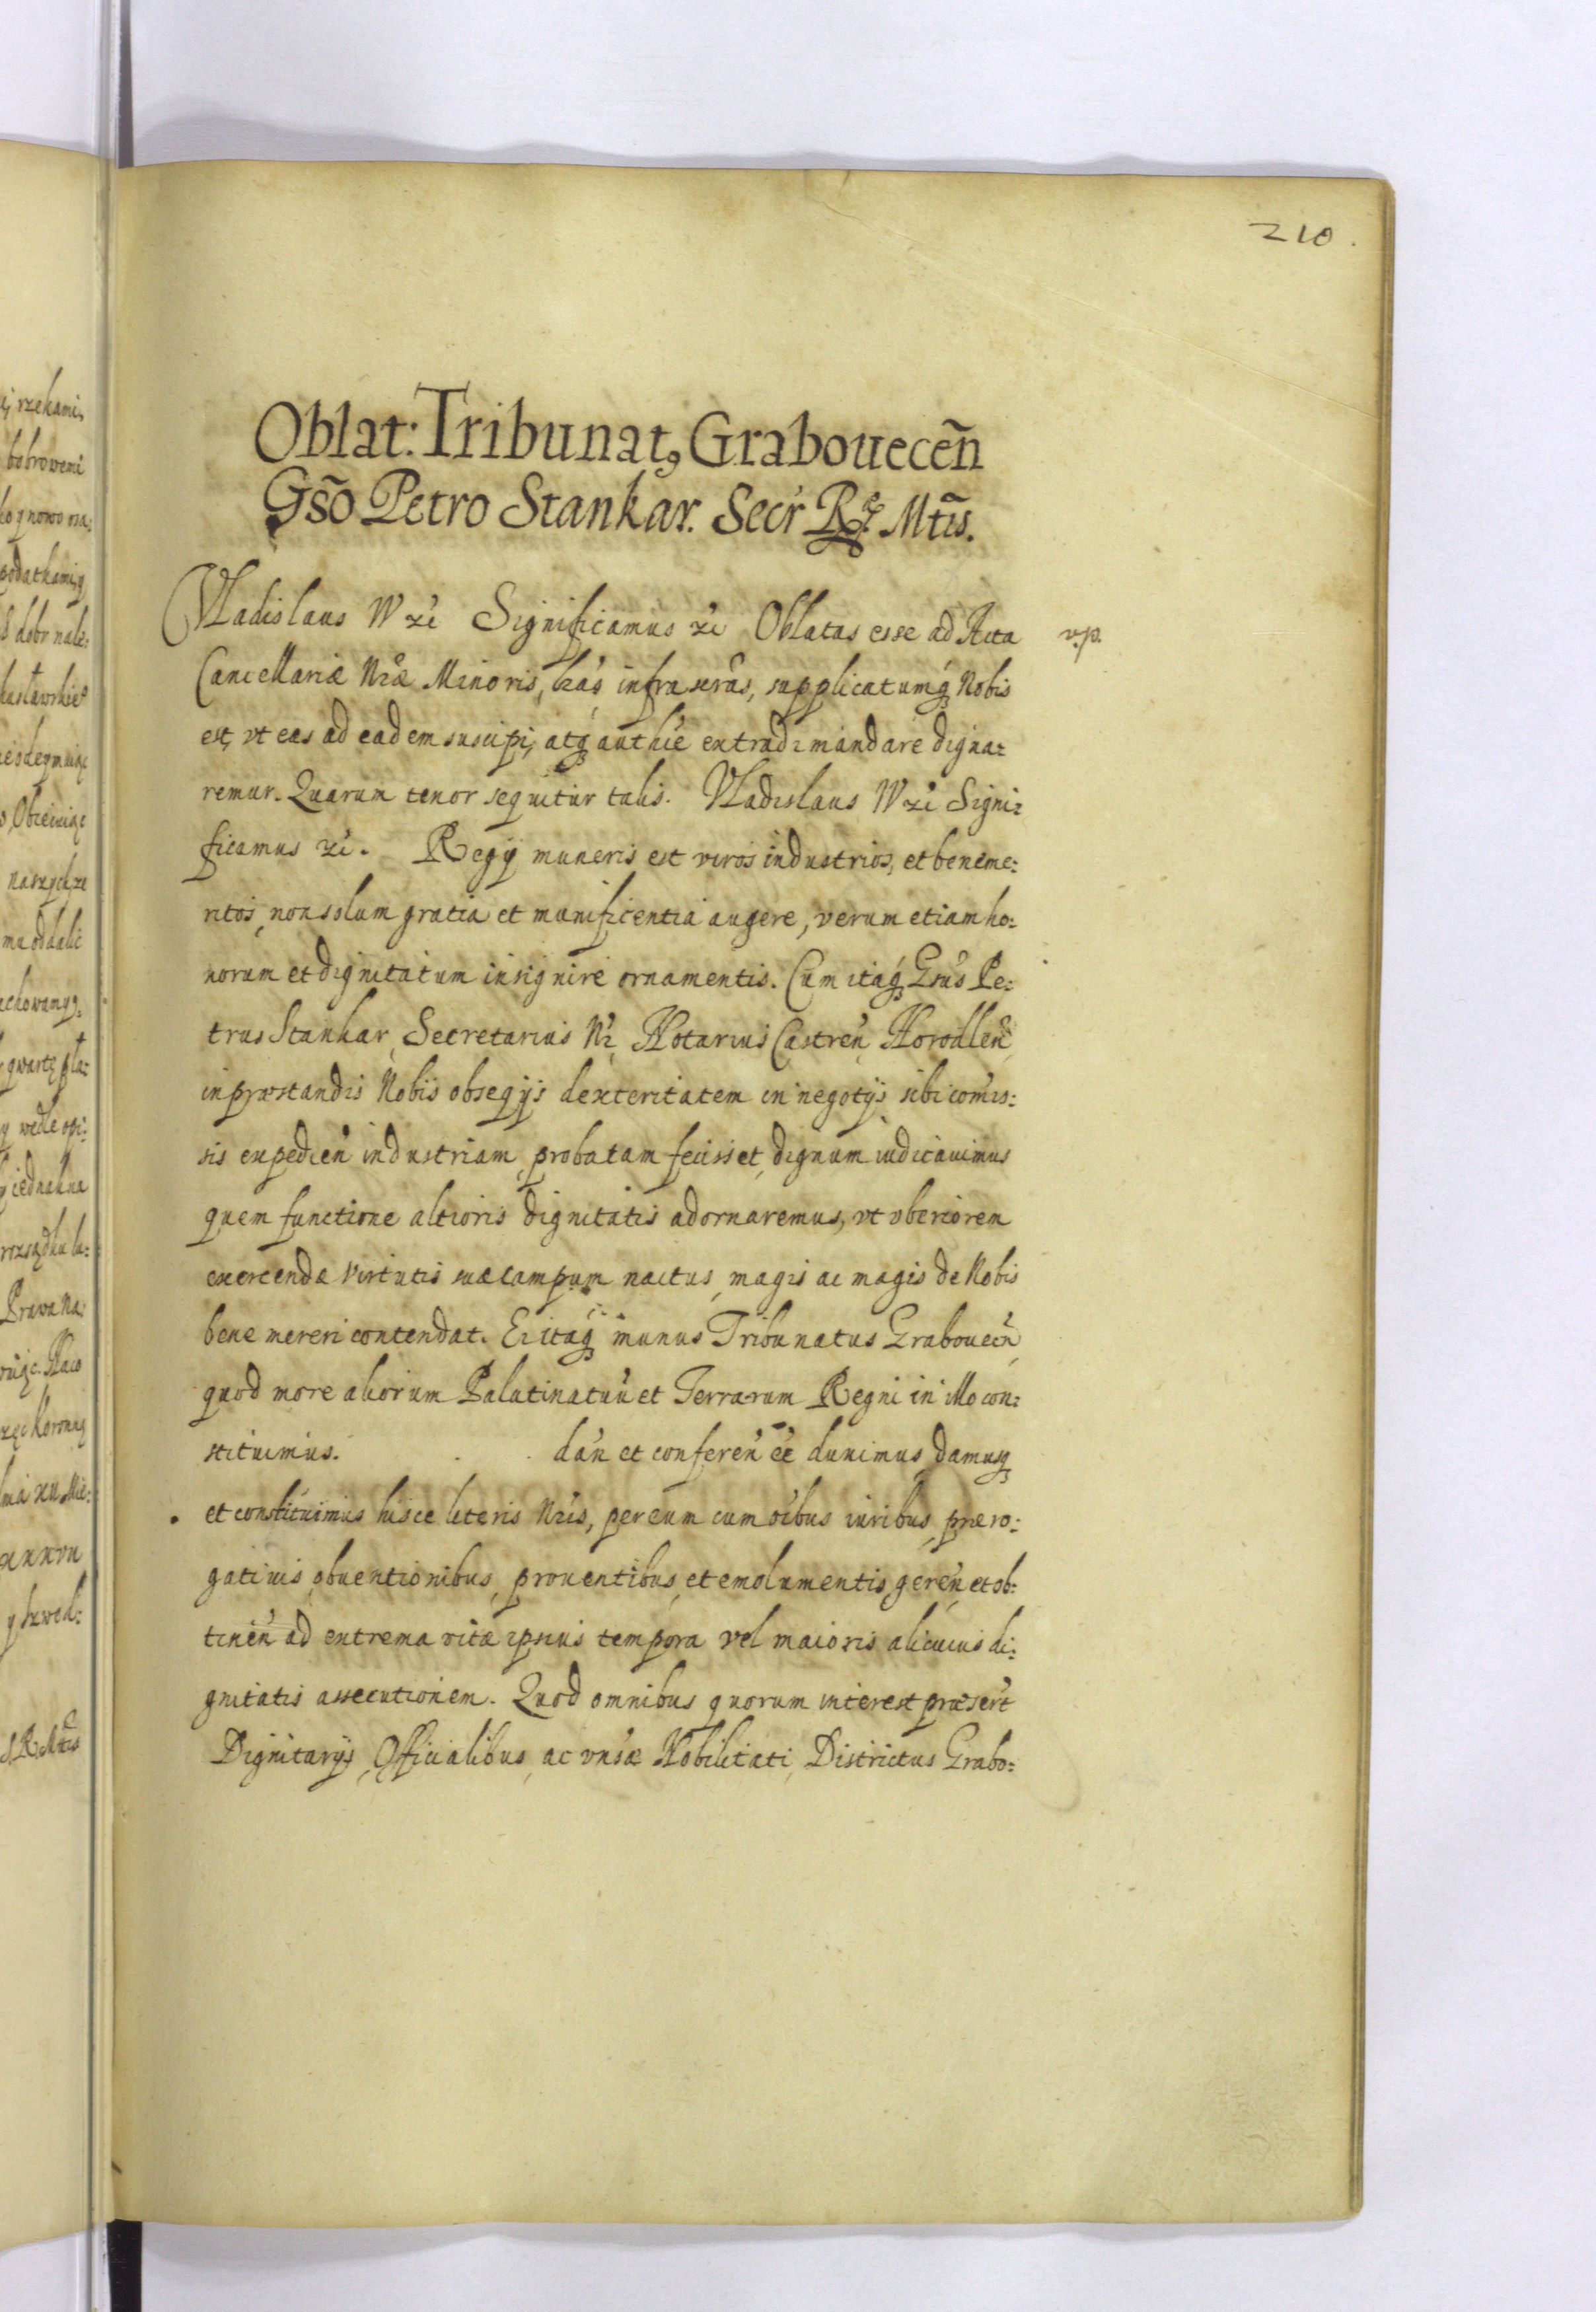 210.
Oblat: Tribunat9 Grabouecen̄
Gs̃o Petro Stankar. Secr Rę Mt̃is.
Vladislaus IV zc̀ Significamus zc̀ Oblatas esse ad Acta
v.p.
Cancellariæ Nr̃æ Minoris, lr̃as infrascr̃as, supplicatumq́ꝫ Nobis
est, vt eas ad eadem suscipi, atqꝫ auth́ce extradi mandare digna:
remur. Quarum tenor sequitur talis. Vladislaus IV zc̀ Signi:
ficamus zc̀. Regij muneris est viros industrios, et beneme:
ritos, non solum gratia et munificentia augere, verum etiam ho:
norum et dignitatum insignire ornamentis. Cum itaq́ꝫ Gsús Pe:
trus Stankar, Secretarius Nr̃, Notarius Castren̄, Horodlen̄,
in præstandis Nobis obseqijs dexteritatem in negotijs sibi com̄is:
sis expedien̄ industriam, probatam fecisset, dignum iudicauimus
quem functione altioris dignitatis adornaremus, vt vberiorem
exercendæ virtutis suæ campum nactus, magis ac magis de Nobis
bene mereri contendat. Ei itaq́ꝫ munus Tribunatus Grabouecn̄,
quod more aliorum Palatinatuū et Terrarum Regni in illo con:
stituimus. dan̄ et conferen̄ eē duximus, damusqꝫ
et constituimus hisce literis Nr̃is, per eum cum oībus iuribus, prero:
gatiuis, obuentionibus, prouentibus, et emolumentis, geren̄, et ob:
tinen̄ ad extrema vitæ ipsius tempora vel maioris alicuius di:
gnitatis assecutionem. Quod omnibus quorum interest præsert́
Dignitarijs, Officialibus, ac vnsæ Nobilitati, Districtus Grabo: